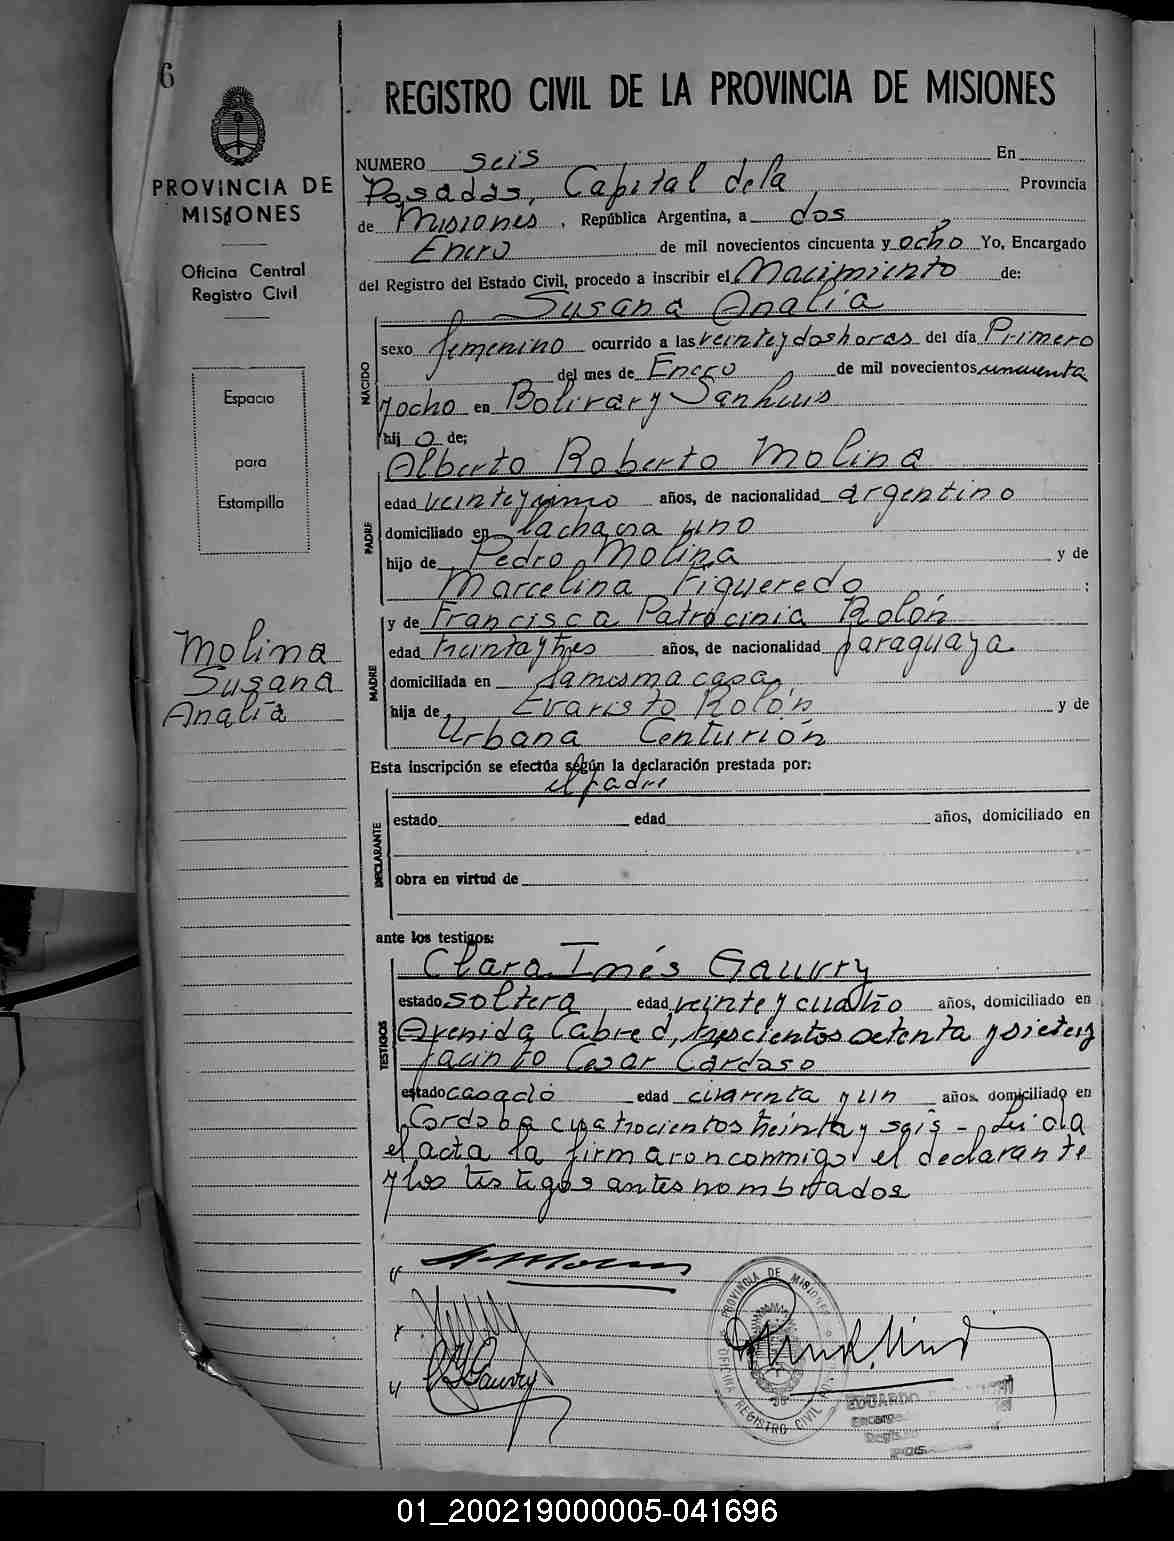 6
PROVINCIA DE
MISIONES
Oficina Central
Registro Civil
Espacio
para
Estampilla
Molina
Susana
Analía
REGISTRO CIVIL DE LA PROVINCIA DE MISIONES
NUMERO seis En
Posadas, Capital de la Provincia
de Misiones, República Argentina, a dos
Enero de mil novecientos cincuenta y ocho Yo, Encargado
del Registro del Estado Civil, procedo a inscribir el Nacimiento de:
Susana Analía
NACIDO
sexo femenino ocurrido a las veinte y dos horas del día Primero
del mes de Enero de mil novecientos cincuenta
y ocho en Bolivar y San Luis
hij o de;
PADRE
Alberto Roberto Molina
edad años, de nacionalidad argentino
domiciliado en la chacra uno
hijo de Pedro Molina y de
Marcelina Figueredo ;
MADRE
y de Francisca Patrocinia Rolón
edad treinta y tres años, de nacionalidad paraguaya
domiciliada en la misma casa,
hija de Evaristo Rolón y de
Urbana Centurión
Esta inscripción se efectúa según la declaración prestada por:
el padre
DECLARANTE
estado edad años, domiciliado en
obra en virtud de
ante los testigos:
TESTIGOS
Clara Inés Gauvry
estado soltera edad veinte y cuatro años, domiciliado en
Avenida Cabred, trescientos setenta y siete y
Jacinto Cesar Cardoso
estado casado edad cuarenta y un años, domiciliado en
Cordoba cuatrocientos treinta y seis - Leida
el acta la firmaron conmigo el declarante
y los testigos antes nombrados
PROVINCIA DE MISIONES
REGISTRO CIVIL
EDUARDO
01_200219000005-041696